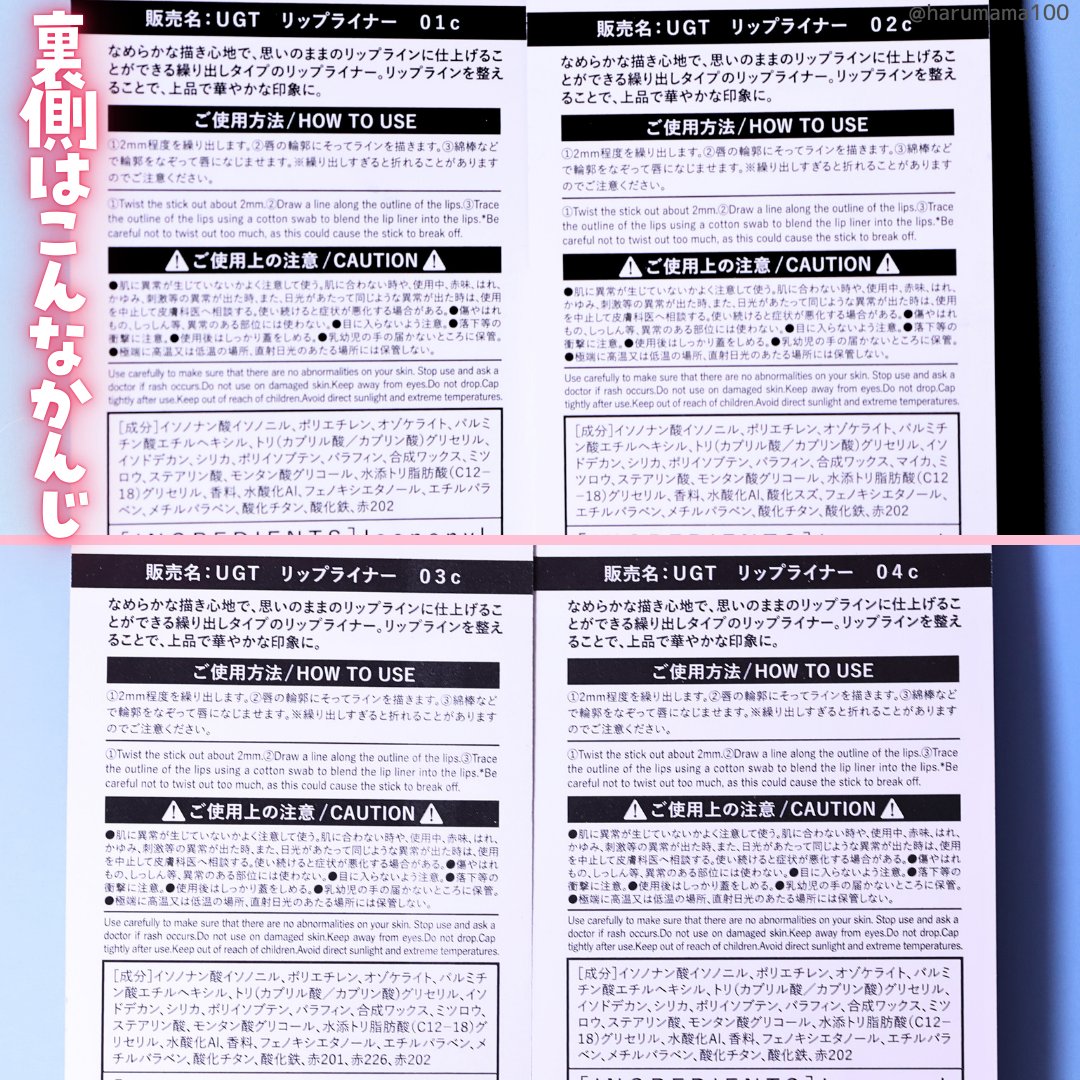 裏側はこんなかんじ
@harumama100
販売名:UGT リップライナー 01c
なめらかな描き心地で、思いのままのリップラインに仕上げるこ
とができる繰り出しタイプのリップライナー。リップラインを整え
ることで、上品で華やかな印象に。
ご使用方法/HOW TO USE
①2mm程度を繰り出します。②唇の輪郭にそってラインを描きます。③綿棒など
で輪郭をなぞって唇になじませます。※繰り出しすぎると折れることがあります
のでご注意ください。
①Twist the stick out about 2mm.②Draw a line along the outline of the lips.③Trace
the outline of the lips using a cotton swab to blend the lip liner into the lips.*Be
careful not to twist out too much, as this could cause the stick to break off.
ご使用上の注意/CAUTION
●肌に異常が生じていないかよく注意して使う。肌に合わない時や、使用中、赤味、はれ、
かゆみ、刺激等の異常が出た時、また、日光があたって同じような異常が出た時は、使用
を中止して皮膚科医へ相談する。使い続けると症状が悪化する場合がある。●傷やはれ
もの、しっしん等、異常のある部位には使わない。●目に入らないよう注意。●落下等の
衝撃に注意。●使用後はしっかり蓋をしめる。●乳幼児の手の届かないところに保管。
●極端に高温又は低温の場所、直射日光のあたる場所には保管しない。
Use carefully to make sure that there are no abnormalities on your skin. Stop use and ask a
doctor if rash occurs.Do not use on damaged skin.Keep away from eyes.Do not drop.Cap
tightly after use.Keep out of reach of children.Avoid direct sunlight and extreme temperatures.
[成分]イソノナン酸イソノニル、ポリエチレン、オゾケライト、パルミ
チン酸エチルヘキシル、トリ(カプリル酸/カプリン酸)グリセリル、
イソドデカン、シリカ、ポリイソブテン、パラフィン、合成ワックス、ミツ
ロウ、ステアリン酸、モンタン酸グリコール、水添トリ脂肪酸(C12-
18)グリセリル、香料、水酸化Al、フェノキシエタノール、エチルパラ
ベン、メチルパラベン、酸化チタン、酸化鉄、赤202
販売名:UGT リップライナー 02c
なめらかな描き心地で、思いのままのリップラインに仕上げるこ
とができる繰り出しタイプのリップライナー。リップラインを整え
ることで、上品で華やかな印象に。
ご使用方法/HOW TO USE
①2mm程度を繰り出します。②唇の輪郭にそってラインを描きます。③綿棒など
で輪郭をなぞって唇になじませます。※繰り出しすぎると折れることがあります
のでご注意ください。
①Twist the stick out about 2mm.②Draw a line along the outline of the lips.③Trace
the outline of the lips using a cotton swab to blend the lip liner into the lips.*Be
careful not to twist out too much, as this could cause the stick to break off.
ご使用上の注意/CAUTION
●肌に異常が生じていないかよく注意して使う。肌に合わない時や、使用中、赤味、はれ、
かゆみ、刺激等の異常が出た時、また、日光があたって同じような異常が出た時は、使用
を中止して皮膚科医へ相談する。使い続けると症状が悪化する場合がある。●傷やはれ
もの、しっしん等、異常のある部位には使わない。●目に入らないよう注意。●落下等の
衝撃に注意。●使用後はしっかり蓋をしめる。●乳幼児の手の届かないところに保管。
●極端に高温又は低温の場所、直射日光のあたる場所には保管しない。
Use carefully to make sure that there are no abnormalities on your skin. Stop use and ask a
doctor if rash occurs.Do not use on damaged skin.Keep away from eyes.Do not drop.Cap
tightly after use.Keep out of reach of children.Avoid direct sunlight and extreme temperatures.
[成分]イソノナン酸イソノニル、ポリエチレン、オゾケライト、パルミ
チン酸エチルヘキシル、トリ(カプリル酸/カプリン酸)グリセリル、イソ
ドデカン、シリカ、ポリイソブテン、パラフィン、合成ワックス、マイカ、ミ
ツロウ、ステアリン酸、モンタン酸グリコール、水添トリ脂肪酸(C12
-18)グリセリル、香料、水酸化Al、酸化スズ、フェノキシエタノール、
エチルパラベン、メチルパラベン、酸化チタン、酸化鉄、赤202
販売名:UGT リップライナー 03c
なめらかな描き心地で、思いのままのリップラインに仕上げるこ
とができる繰り出しタイプのリップライナー。リップラインを整え
ることで、上品で華やかな印象に。
ご使用方法/HOW TO USE
①2mm程度を繰り出します。②唇の輪郭にそってラインを描きます。③綿棒など
で輪郭をなぞって唇になじませます。※繰り出しすぎると折れることがあります
のでご注意ください。
①Twist the stick out about 2mm.②Draw a line along the outline of the lips.③Trace
the outline of the lips using a cotton swab to blend the lip liner into the lips.*Be
careful not to twist out too much, as this could cause the stick to break off.
ご使用上の注意/CAUTION
●肌に異常が生じていないかよく注意して使う。肌に合わない時や、使用中、赤味、はれ、
かゆみ、刺激等の異常が出た時、また、日光があたって同じような異常が出た時は、使用
を中止して皮膚科医へ相談する。使い続けると症状が悪化する場合がある。●傷やはれ
もの、しっしん等、異常のある部位には使わない。●目に入らないよう注意。●落下等の
衝撃に注意。●使用後はしっかり蓋をしめる。●乳幼児の手の届かないところに保管。
●極端に高温又は低温の場所、直射日光のあたる場所には保管しない。
Use carefully to make sure that there are no abnormalities on your skin. Stop use and ask a
doctor if rash occurs.Do not use on damaged skin.Keep away from eyes.Do not drop.Cap
tightly after use.Keep out of reach of children.Avoid direct sunlight and extreme temperatures.
[成分]イソノナン酸イソノニル、ポリエチレン、オゾケライト、パルミチ
ン酸エチルヘキシル、トリ(カプリル酸/カプリン酸)グリセリル、イソ
ドデカン、シリカ、ポリイソブテン、パラフィン、合成ワックス、ミツロウ、
ステアリン酸、モンタン酸グリコール、水添トリ脂肪酸(C12-18)グ
リセリル、水酸化Al、香料、フェノキシエタノール、エチルパラベン、メ
チルパラベン、酸化チタン、酸化鉄、赤201、赤226、赤202
販売名:UGT リップライナー 04c
なめらかな描き心地で、思いのままのリップラインに仕上げるこ
とができる繰り出しタイプのリップライナー。リップラインを整え
ることで、上品で華やかな印象に。
ご使用方法/HOW TO USE
①2mm程度を繰り出します。②唇の輪郭にそってラインを描きます。③綿棒など
で輪郭をなぞって唇になじませます。※繰り出しすぎると折れることがあります
のでご注意ください。
①Twist the stick out about 2mm.②Draw a line along the outline of the lips.③Trace
the outline of the lips using a cotton swab to blend the lip liner into the lips.*Be
careful not to twist out too much, as this could cause the stick to break off.
ご使用上の注意/CAUTION
●肌に異常が生じていないかよく注意して使う。肌に合わない時や、使用中、赤味、はれ、
かゆみ、刺激等の異常が出た時、また、日光があたって同じような異常が出た時は、使用
を中止して皮膚科医へ相談する。使い続けると症状が悪化する場合がある。●傷やはれ
もの、しっしん等、異常のある部位には使わない。●目に入らないよう注意。●落下等の
衝撃に注意。●使用後はしっかり蓋をしめる。●乳幼児の手の届かないところに保管。
●極端に高温又は低温の場所、直射日光のあたる場所には保管しない。
Use carefully to make sure that there are no abnormalities on your skin. Stop use and ask a
doctor if rash occurs.Do not use on damaged skin.Keep away from eyes.Do not drop.Cap
tightly after use.Keep out of reach of children.Avoid direct sunlight and extreme temperatures.
[成分]イソノナン酸イソノニル、ポリエチレン、オゾケライト、パルミ
チン酸エチルヘキシル、トリ(カプリル酸/カプリン酸)グリセリル、
イソドデカン、シリカ、ポリイソブテン、パラフィン、合成ワックス、ミツ
ロウ、ステアリン酸、モンタン酸グリコール、水添トリ脂肪酸(C12-
18)グリセリル、水酸化Al、香料、フェノキシエタノール、エチルパラ
ベン、メチルパラベン、酸化チタン、酸化鉄、赤202